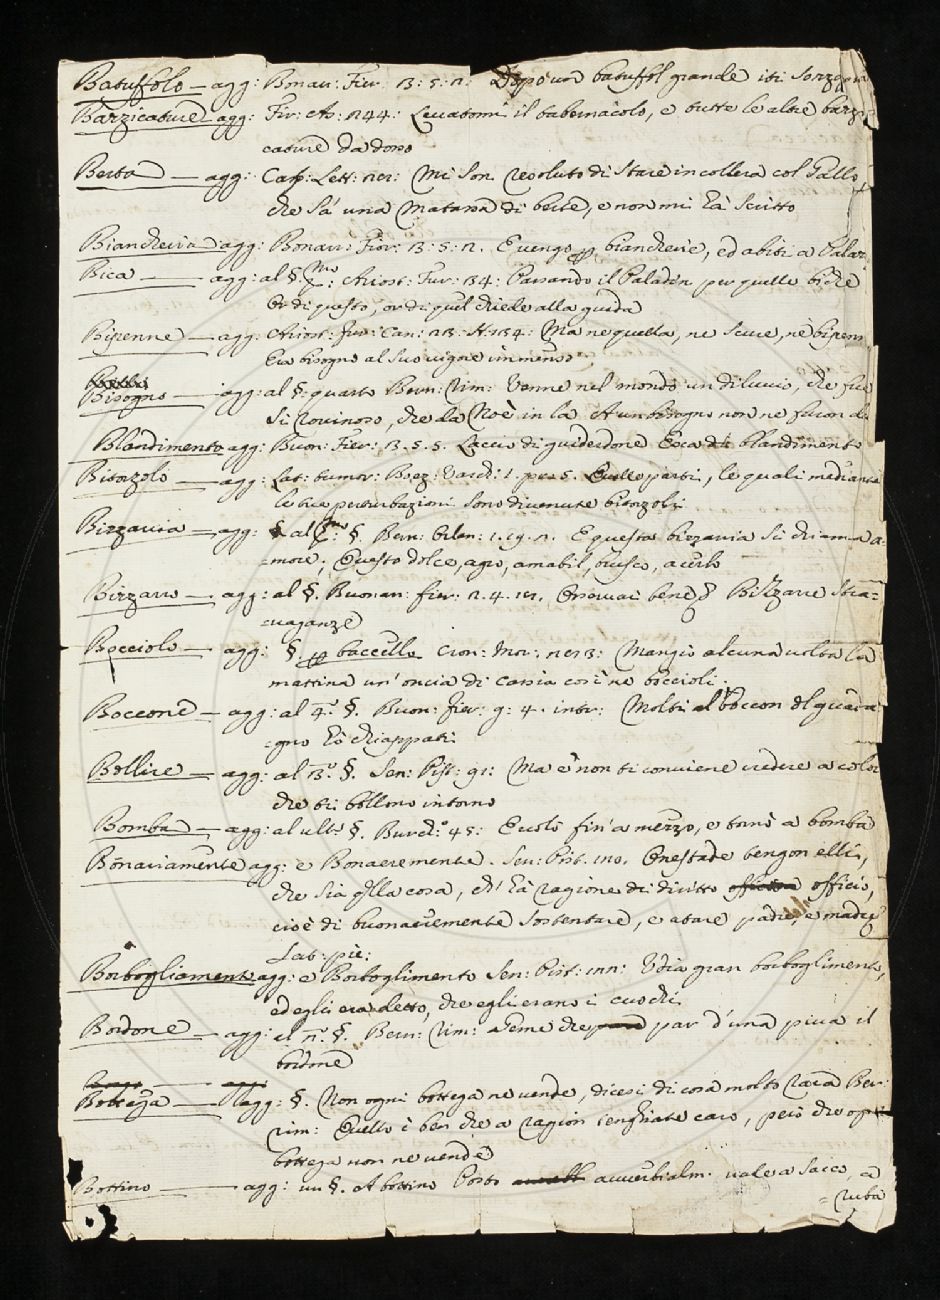 Batuffolo — agg: Bonar: Fier: 3: 5: 2: Dopo un batuffol grande iti
Barzicature agg: Fir: As: 244: Levatomi il tabernacolo, e tutte le altre barzi
cature da dosso
Berta — agg: Car: Lett: Mi son resoluto di stare in collera col Gallo,
che fa una matassa di berte, e non mi ha scritto
Biancheria agg: Bonar: Fier: 3: 5: 2. E vengo biancherie, ed abiti a
Bica — agg: al §. Ariost: Fur: 34: Passando il Paladin per quelle biche
Or di questo, or di quel chiede alla guida
Bipenne — agg: Ariost: Fur: Can: 23: St: 134: Ma ne quella, ne scure, ne bipenn
Era bisogno al suo vigore immenso
Bisogno — agg: al §. quarto Bern: Rim: Venne nel mondo un diluvio, che fue
Si rovinoso, che da Noè in la A un bisogno non ne furon
Blandimento agg: Buon: Fier: 3. 5. 5. Laccio di guiderdone Esca blandimento
Bitorzolo — agg: Lat: tumor: Boez: Varch: 1. pr: 5. parti, le quali mediante
le tue perturbazioni sono divenute bitorzoli
Bizzaria — agg: al §. Bern: Orlan: 1. 19. 2. E questa bizzaria si chiama a=
=more; Questo dolce, agro, amabil, brusco, acerbo
Bizzarro — agg: al §. Buonar: fier: 2. 4. Orsovai bene Bizzarre stra=
=vaganze
Bocciolo — agg: §. per baccello Cron: Mor: Mangia alcuna volta la
mattina un'oncia di cassia così ne boccioli.
Boccone — agg: al 4.º §. Buon: fier: g: 4. intr: Molti al boccon del guada
=gno hò chiappati
Bollire — agg: al 3.º §. Sen: Pist: 91: Ma e' non ti conviene credere a color
che ti bollono intorno
Bomba — agg: al ult.º §. Burch.º 45: E volò fin' a mezzo, e tornò a bomba
Bonariamente agg: e Bonaeremente. Sen: Pist. 110. Onestade tengon elli,
che sia quella cosa, ch' hà ragione di diritto officio,
cioè di buonaeremente sostentare, e atare padre, e madre
Lat: piè:
Borbogliamento agg: e Borboglimento Sen: Pist: 122: Udia gran borboglimento,
ed egli era detto, che egli erano i cuochi.
Bordone — agg: al 2.º §. Bern: Rim: che par d'una piva il
bordone
Bottega — agg: §. Non ogni bottega ne vende, dicesi di cosa molto rara Ber:
rim: Quello è ben che a ragion tenghiate caro, però che ogni
bottega non ne vende
Bottino — agg: un §. A bottino Posto avverbialm. vale a sacco, a
=ruba